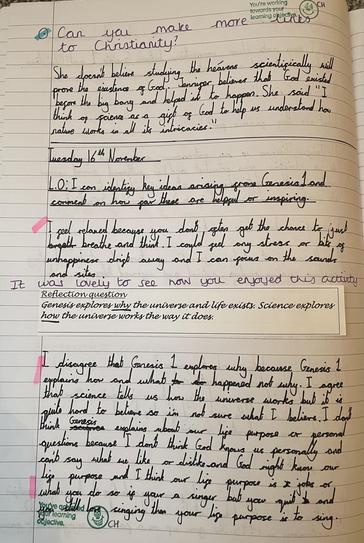 You're working
towards your
learning objective.
CH
Can you make more links
to Christianity?
She doesn't believe studying the heavens scientifically will
prove the existence of God. Jennifer believes that God existed
before the big bang and helped it to happen. She said "I
think of science as a gift of God to help us understand how
nature works in all its intricacies."
Tuesday 16th November
L.O: I can identify key ideas arising from Genesis 1 and
comment on how far these are helpful or inspiring.
I feel relaxed because you don't often get the chance to just
breathe and think. I could feel any stress or bits of
unhappiness drift away and I can focus on the sounds
and sites.
It was lovely to see how you enjoyed this activity
Reflection question
Genesis explores why the universe and life exists. Science explores
how the universe works the way it does.
I disagree that Genesis 1 explores why because Genesis 1
explains how and what happened not why. I agree
that science tells us how the universe works but it is
quite hard to believe so im not sure what I believe. I don't
think Genesis explains about our life purpose or personal
questions because I don't think God knows us personally and
can't say what we like or dislike and God might know our
life purpose and I think our life purpose is jobs or
what you do so if your a singer but you quit and
singing then your life purpose is to sing.
You've achieved
your learning
objective.
CH